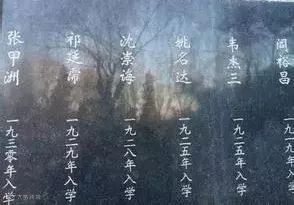 阎裕昌
一九一九年入学
韦杰三
一九二五年入学
姚名达
一九二五年入学
沈崇诲
一九二八年入学
祁延霈
一九二九年入学
张甲洲
一九三零年入学